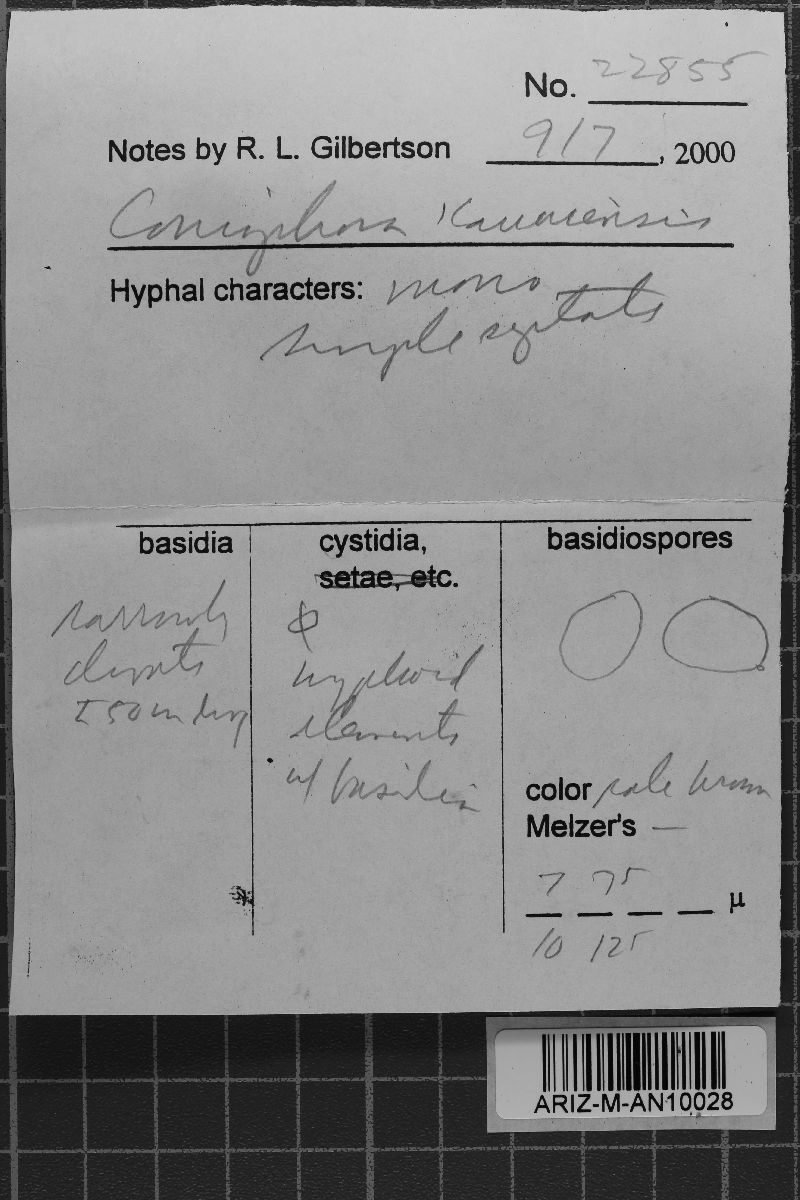 No. 22855
Notes by R. L. Gilbertson 9/7, 2000
Coniophora Kauaiensis
Hyphal characters: mono
simple septate
basidia
cystidia,
setae, etc.
basidiospores
narrowly
clavate
50 um long
hyphoid
elements
w/ basidia
color pale brown
Melzer's —
7 75
µ
10 125
ARIZ-M-AN10028